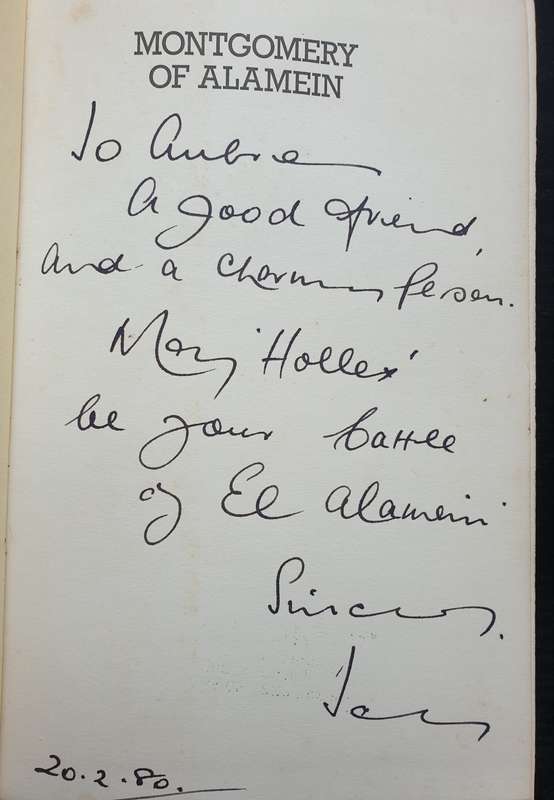 MONTGOMERY
OF ALAMEIN
To Aubrie
A good friend,
and a charming person.
May 'Hollex'
be your battle
of El Alamein
Sincerely.
20.2.80.